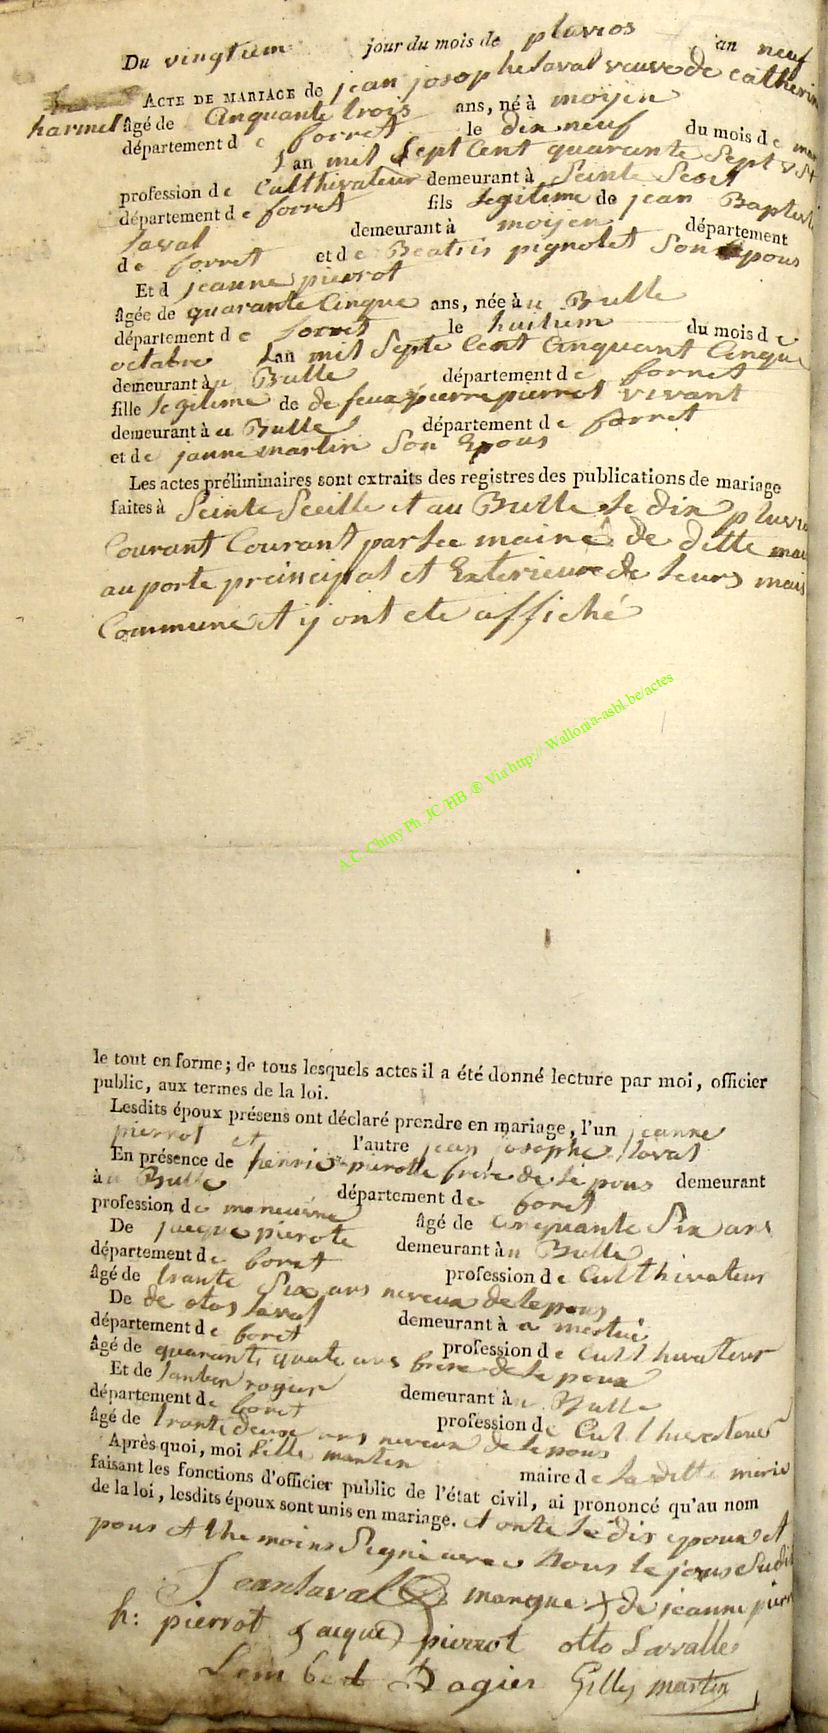 Du vingtiem jour du mois de pluvios an neuf
ACTE DE MARIAGE de jean josophe laval veuve de catherin
harmel âgé de Cinquante trois ans, né à moyen
département de forret le dix neuf du mois de
Lan mil Sept Cent quarante Sept
profession de Culthivateur demeurant à Seinte
département de forret fils legitime de jean Baptest
laval demeurant à moyen département
de forret et de Beatris pignolet Son Epous
Et d jeanne pierrot
âgée de quarante Cinque ans, née àu Bulle
département de forret le huitiem du mois de
octobre Lan mil Septe Cent Cinquant Cinque
demeurant àu Bulle département de forret
fille legitime de de feux pierre pierrot vivant
demeurant à u Bulle département de forret
et de janne martin Son Epous
Les actes préliminaires sont extraits des registres des publications de mariage
faites à Seinte Seeille et au Bulle le dix pluvio
Courant Courant par lee maire de ditte
au porte preincipal et Exterieure de leurs mais
Commune et y ont ete affiché
A.C. Chiny Ph. JC/HB ® Via http:// Wallonia-asbl.be/actes
le tout en forme; de tous lesquels actes il a été donné lecture par moi, officier
public, aux termes de la loi.
Lesdits époux présens ont déclaré prendre en mariage, l'un jeanne
pierrot et l'autre jean josophe laval
En présence de henrie pierotte frere de le pous demeurant
àu Bulle département de foret
profession de âgé de Cinquante Six ans
De jacque pierote demeurant àu Bulle
département de foret profession de Culthivateur
âgé de trante Six ans neveux de lepous
De de otos laval demeurant à a
département de foret profession de Culthivateur
âgé de quarante quate ans frere de le poux
Et de lanber rogier demeurant àu Bulle
département de foret profession de Culthivateur
âgé de trante deux ans neveux de lepous
Après quoi, moi Gille martin maire de la ditte merie
faisant les fonctions d'officier public de l'état civil, ai prononcé qu'au nom
de la loi, lesdits époux sont unis en mariage. et onte le dix epoux et
pous et the moins Signé avec Nous le jours Sudit
Jean laval marque + de jeanne pierr
h: pierrot jacque pierrot otto Lavalle
Lembert Rogier Gilly martin